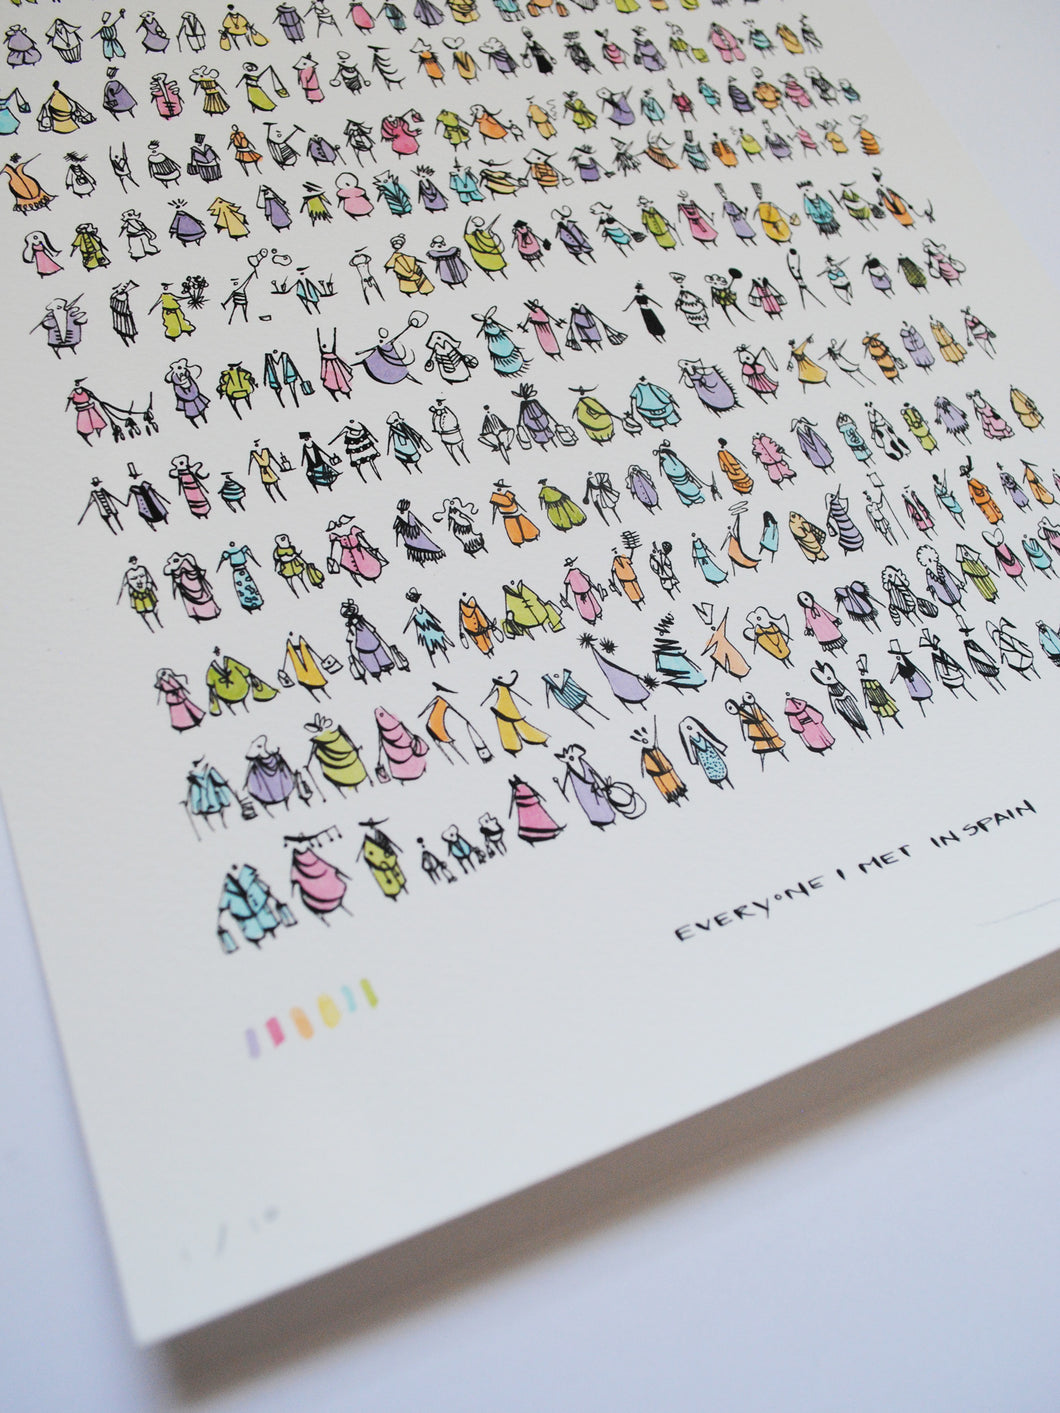 EVERYONE I MET IN SPAIN
1/10